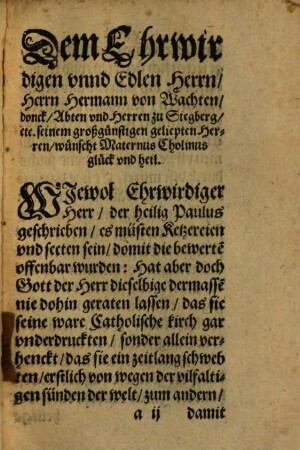 Dem Ehrwir
digen vnnd Edlen Herrn/
Herrn Hermann von Wachten/
donck/Abten vnd Herren zu Siegberg/
etc. seinem großgünstigen geliepten Her-
ren/wünscht Maternus Cholinus
glück vnd heil.
WJewol Ehrwirdiger
Herr/ der heilig Paulus
geschrieben/ es müsten Ketzereien
vnd secten sein/ domit die bewertē
offenbar wurden: Hat aber doch
Gott der Herr dieselbige dermassē
nie dohin geraten lassen/ das sie
seine ware Catholische kirch gar
vnderdruckten/ sonder allein ver-
henckt/das sie ein zeitlang schweb
ten/erstlich von wegen der vilfalti-
gen sünden der welt/zum andern/
a ij damit